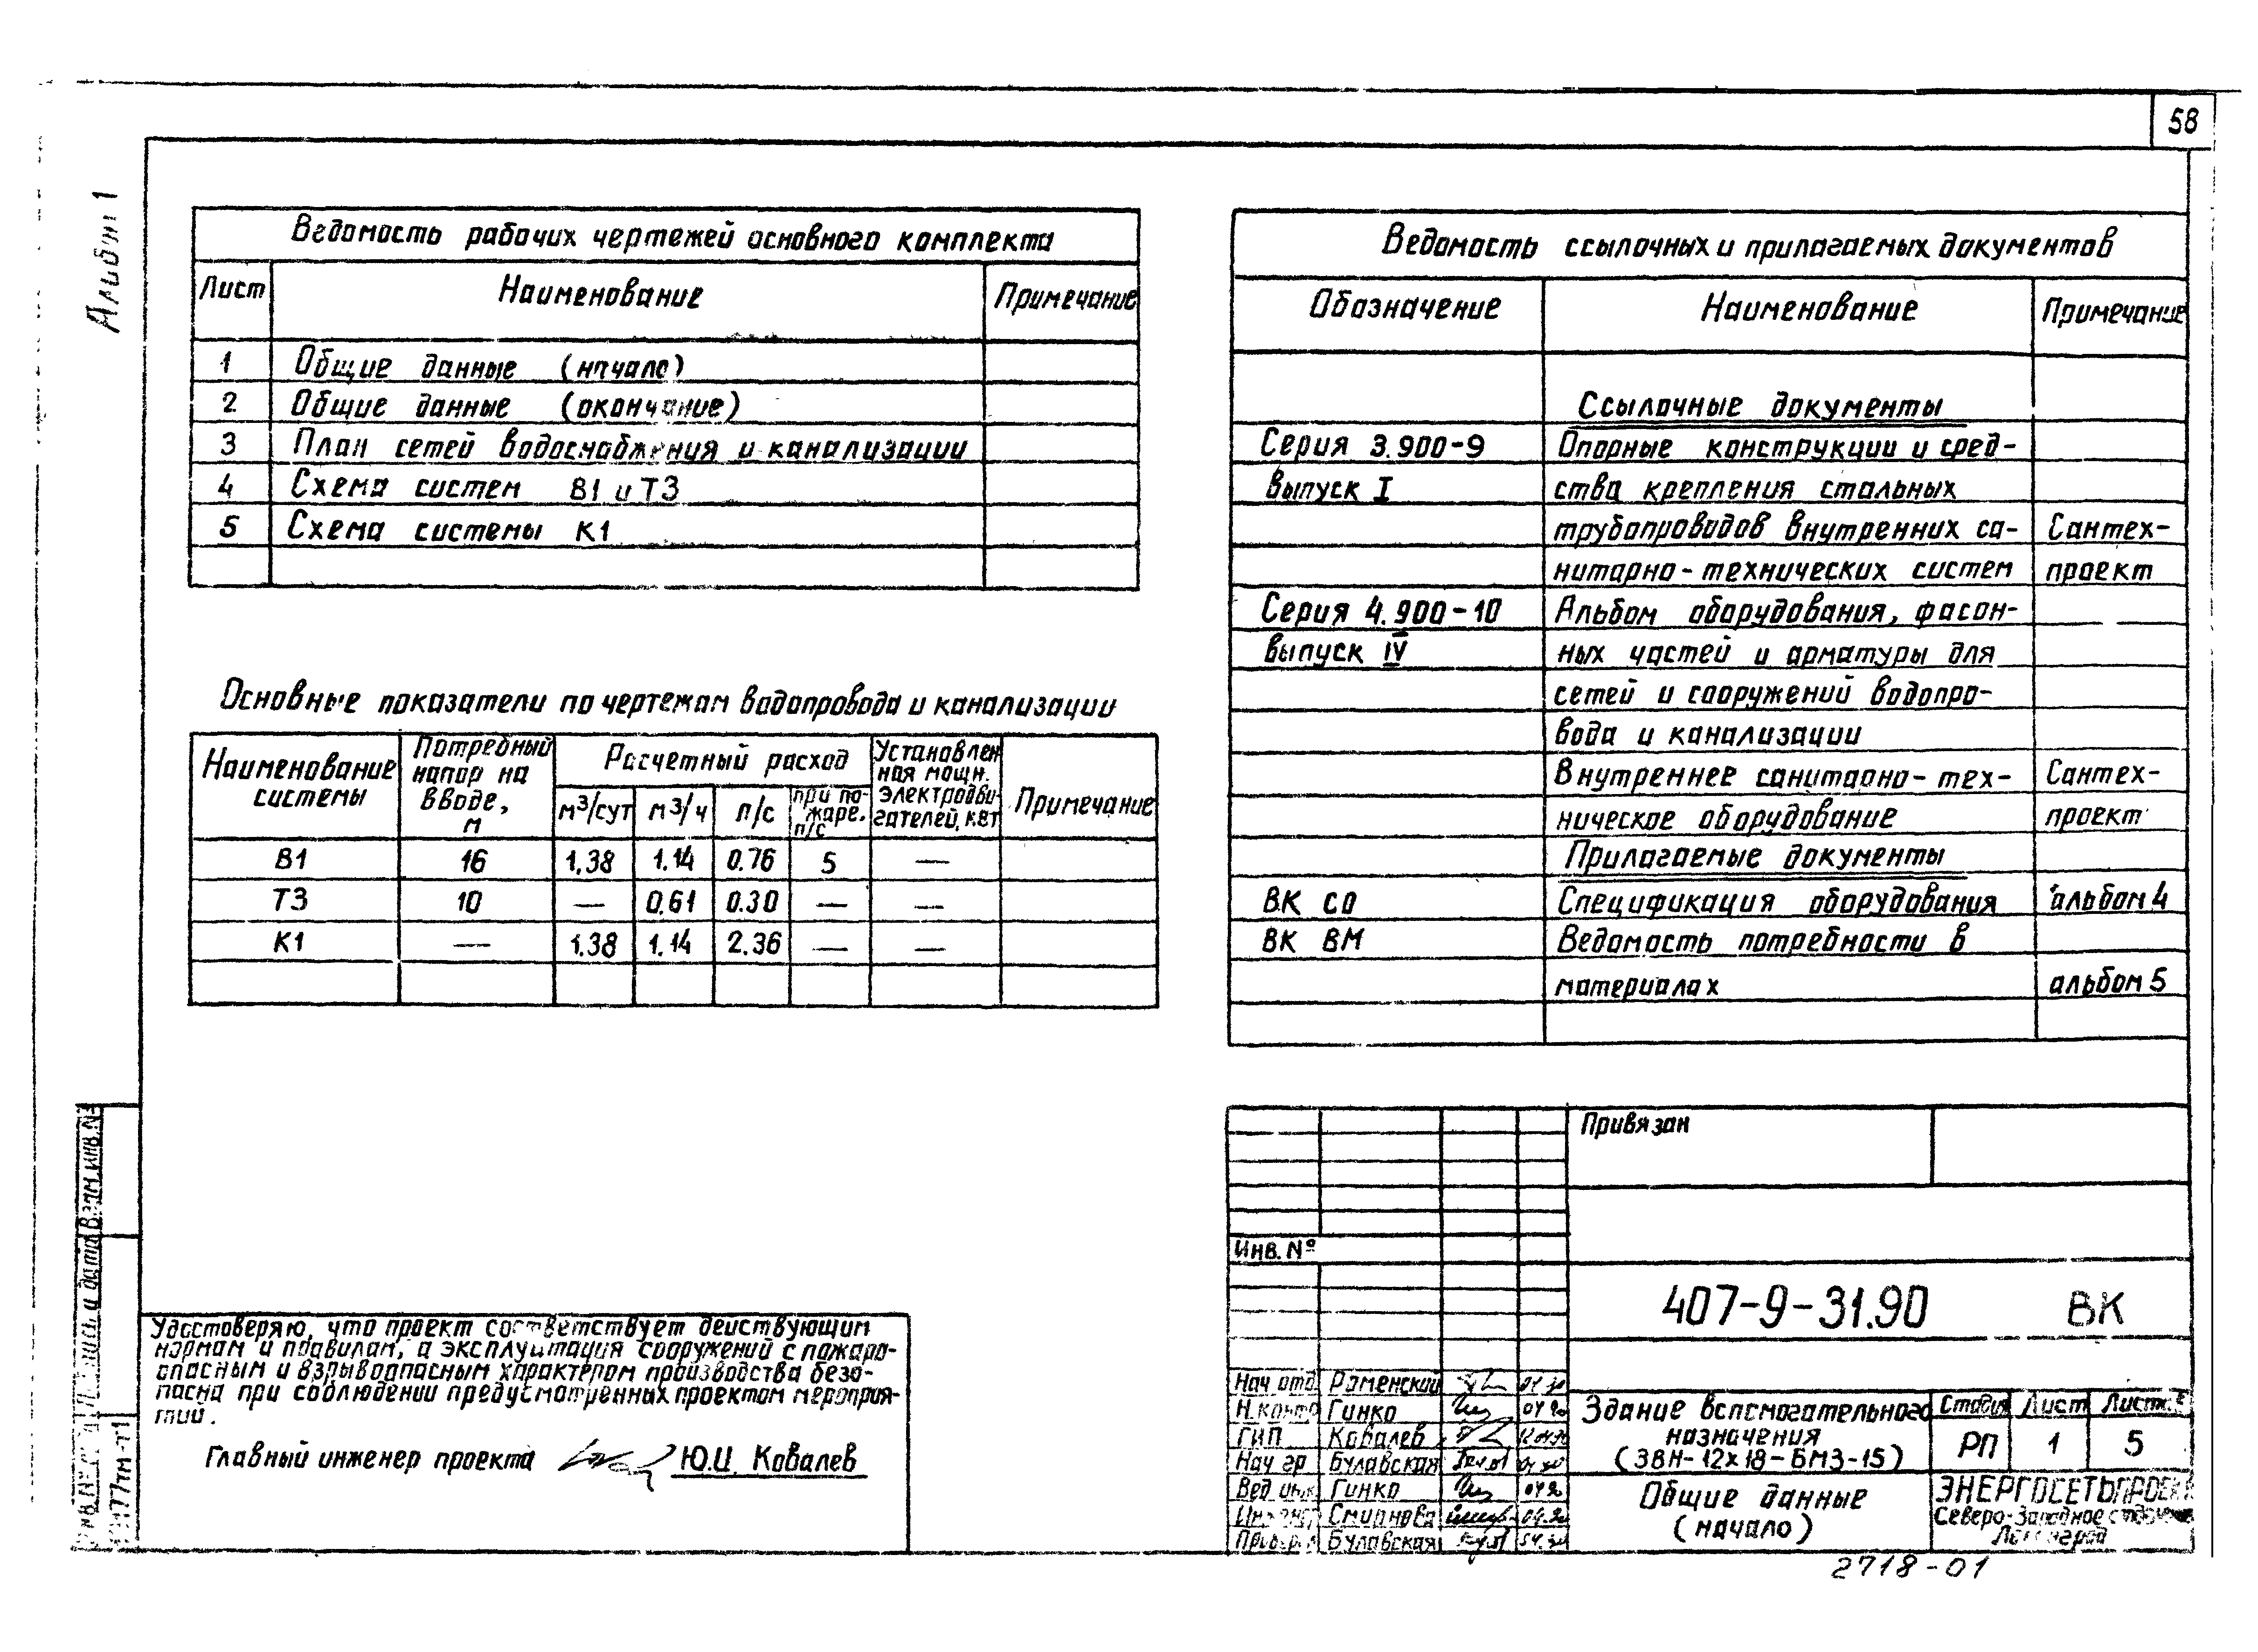 58
Альбом 1
Ведомость рабочих чертежей основного комплекта
Лист Наименование Примечание
1 Общие данные (начало)
2 Общие данные (окончание)
3 План сетей водоснабжения и канализации
4 Схема систем В1 и Т3
5 Схема системы К1
Основные показатели по чертежам водопровода и канализации
Наименование системы
Потребный напор на вводе, м
Расчетный расход
м³/сут м³/ч л/с при пожаре, л/с
Установлен
ная мощн.
электродви-
гателей, квт
Примечание
В1 16 1.38 1.14 0.76 5 —
Т3 10 — 0.61 0.30 — —
К1 — 1.38 1.14 2.36 — —
Ведомость ссылочных и прилагаемых документов
Обозначение Наименование Примечание
Ссылочные документы
Серия 3.900-9 Опорные конструкции и сред-
Выпуск I ства крепления стальных
трубопроводов внутренних са- Сантех-
нитарно-технических систем проект
Серия 4.900-10 Альбом оборудования, фасон-
выпуск IV ных частей и арматуры для
сетей и сооружений водопро-
вода и канализации
Внутреннее санитарно-тех- Сантех-
ническое оборудование проект
Прилагаемые документы
ВК СО Спецификация оборудования альбом 4
ВК ВМ Ведомость потребности в
материалах альбом 5
Взам. инв. №
и дата
Удостоверяю, что проект соответствует действующим
нормам и правилам, а эксплуатация сооружений с пожаро-
опасным и взрывоопасным характером производства безо-
пасна при соблюдении предусмотренных проектом мероприя-
тий.
Главный инженер проекта Ю.И. Ковалев
Привязан
Инв. №
407-9-31.90 ВК
Нач отд Раменский
Н.контр Гинко 04 90
ГИП Ковалев
Нач гр Булавская
Вед инж Гинко
Инженер Смирнова 04.90
Провер Булавская
Здание вспомогательного
назначения
(ЗВН-12х18-БМЗ-15)
Стадия Лист Листов
РП 1 5
Общие данные
(начало)
ЭНЕРГОСЕТЬПРОЕКТ
Северо-Западное отделение
Ленинград
2718-01